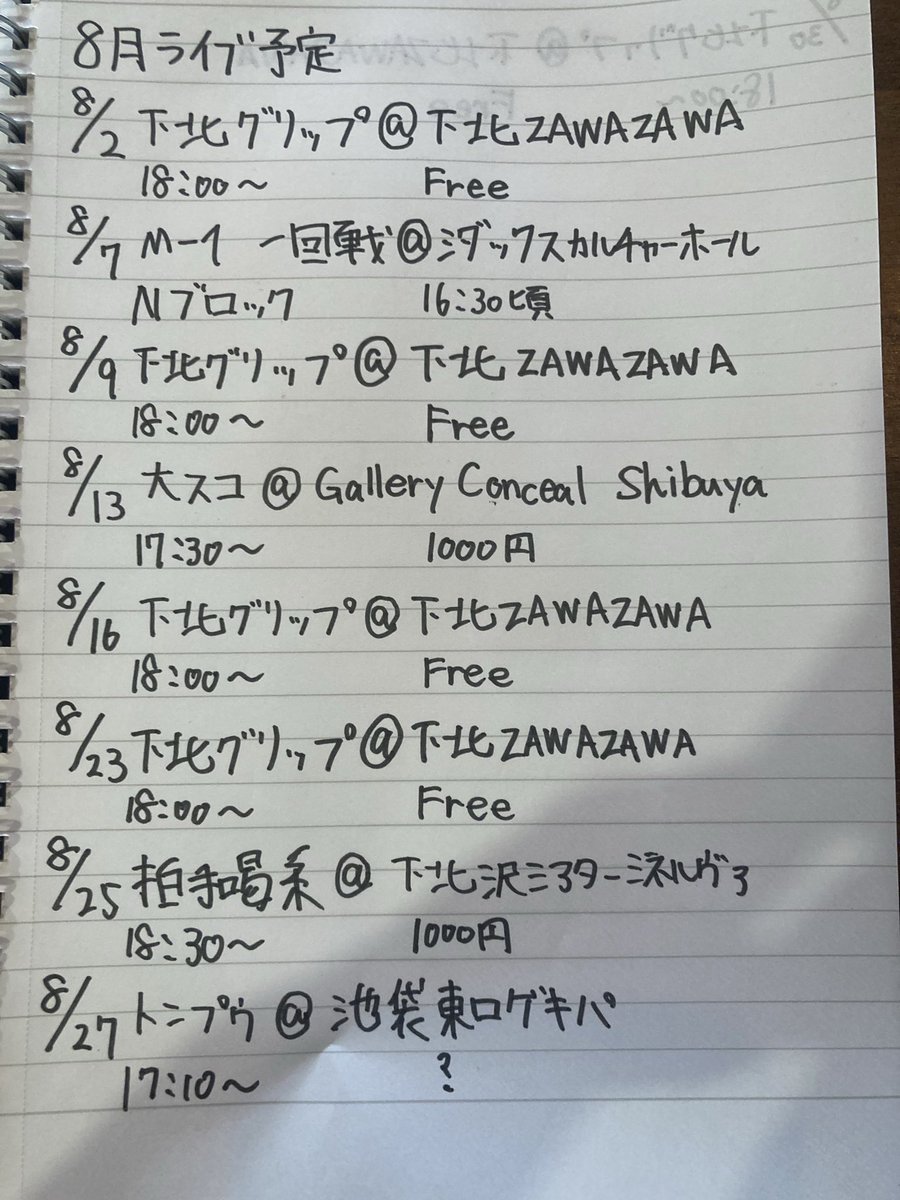 8月ライブ予定
8/2 下北グリップ@下北ZAWAZAWA
18:00～ Free
8/7 M-1 一回戦@シダックスカルチャーホール
Nブロック 16:30頃
8/9 下北グリップ@下北ZAWAZAWA
18:00～ Free
8/13 大スコ@Gallery Conceal Shibuya
17:30～ 1000円
8/16 下北グリップ@下北ZAWAZAWA
18:00～ Free
8/23 下北グリップ@下北ZAWAZAWA
18:00～ Free
8/25 拍手喝系@下北沢シアターミネルヴァ
18:30～ 1000円
8/27 トニプウ@池袋東口ゲキパ
17:10～ ?